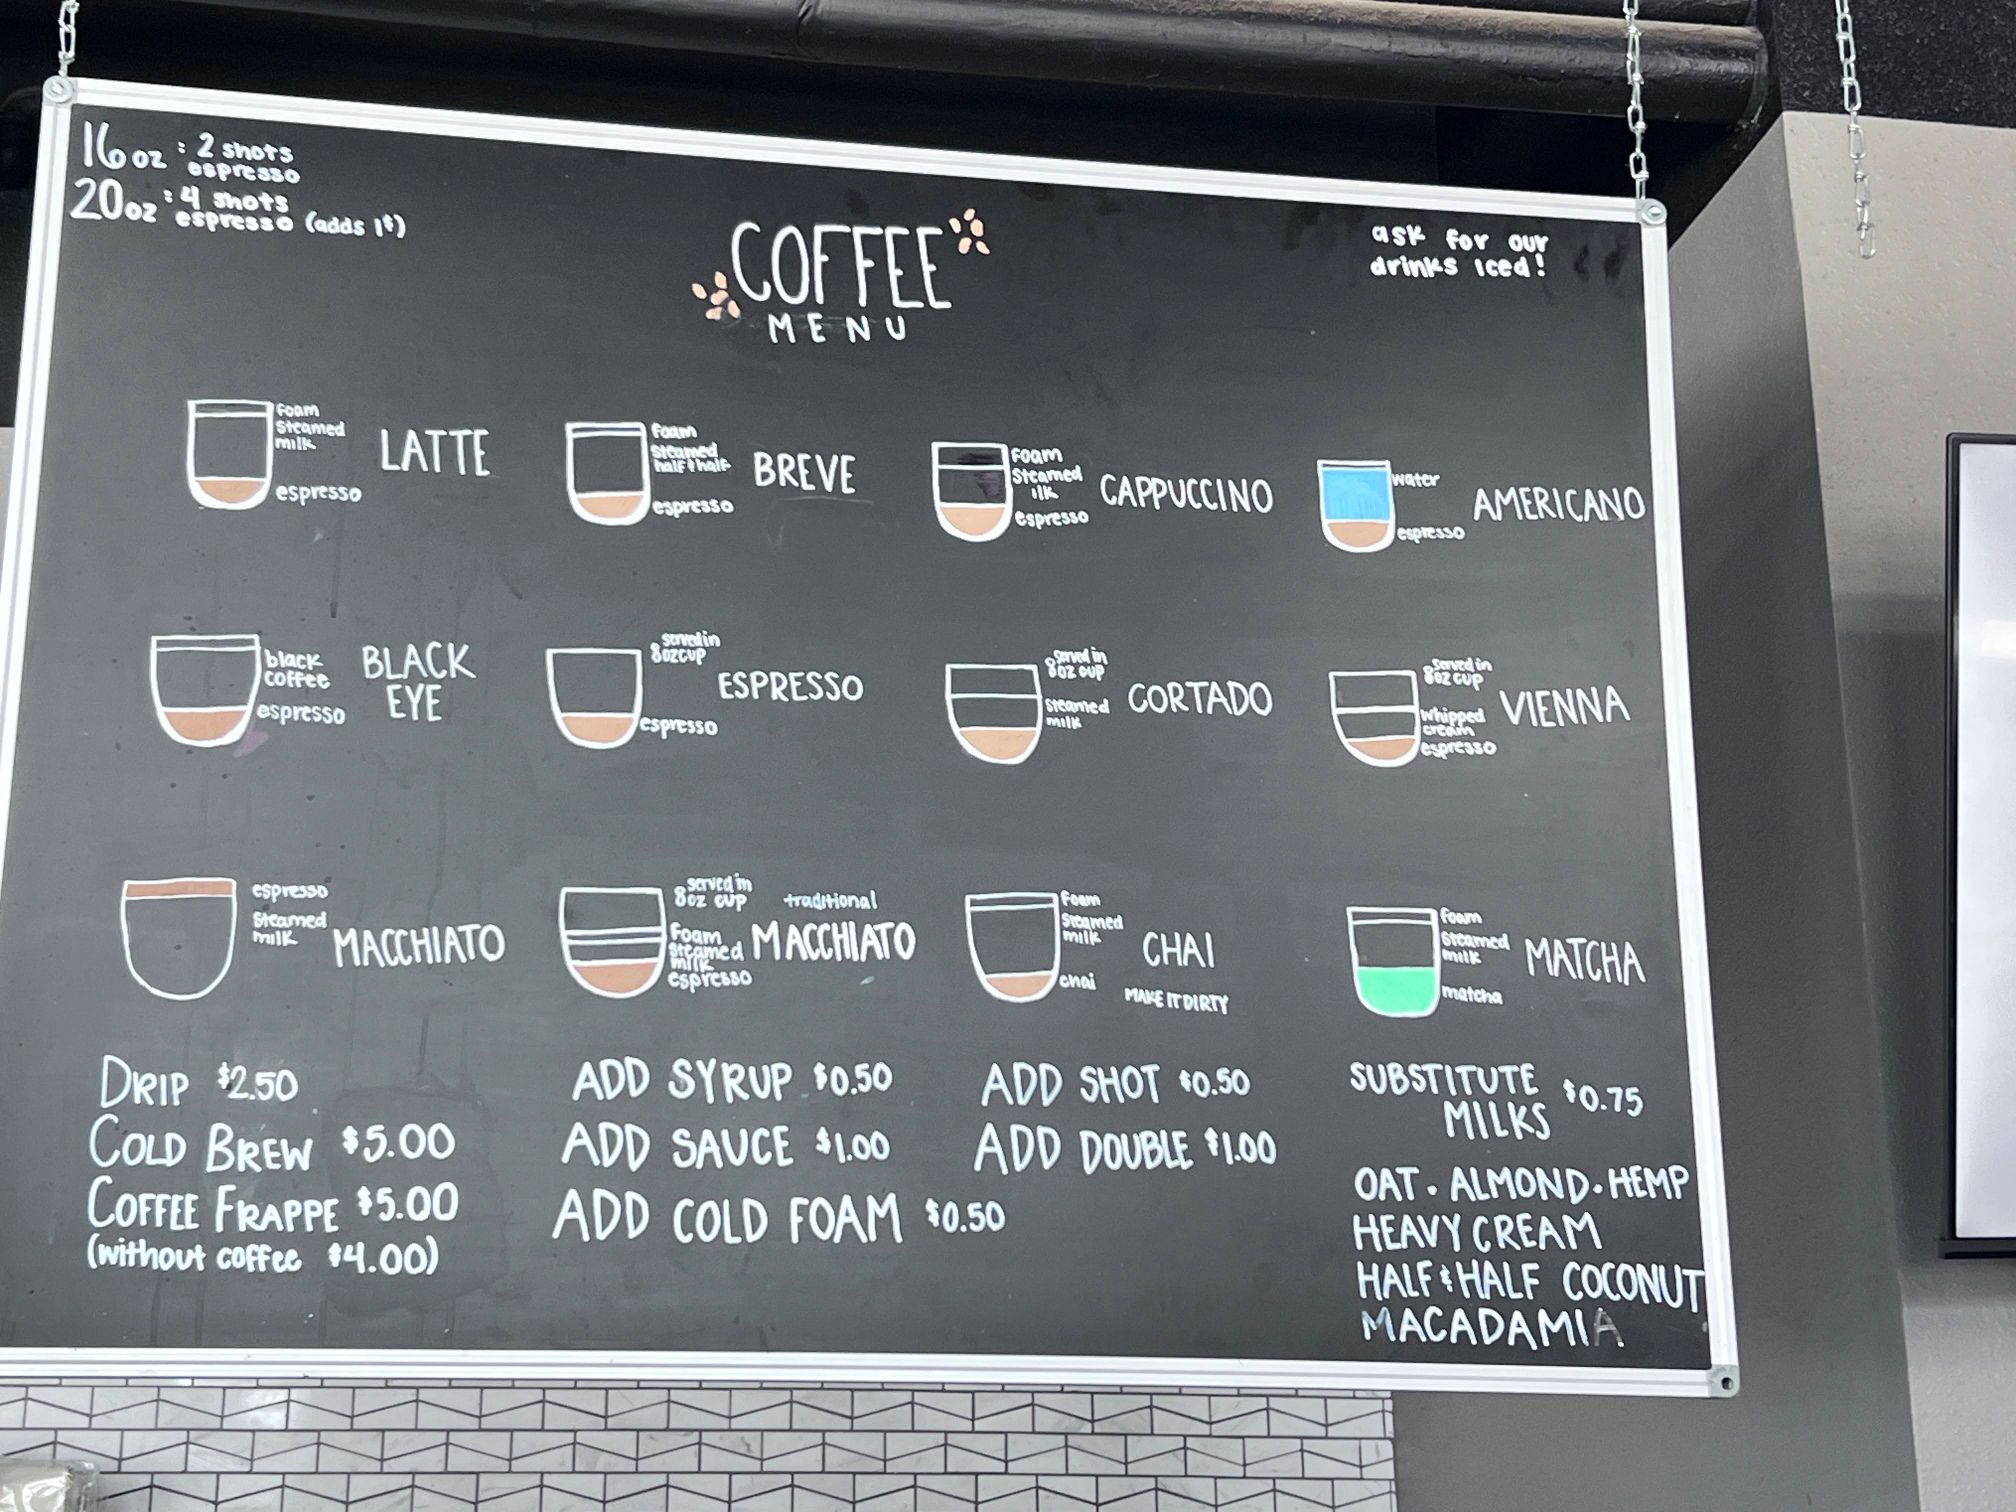 16oz : 2 shots
espresso
20oz : 4 shots
espresso (adds 1$)
COFFEE
MENU
ask for our
drinks iced!
foam
steamed
milk
espresso
LATTE
foam
steamed
half & half
espresso
BREVE
foam
steamed
ilk
espresso
CAPPUCCINO
water
espresso
AMERICANO
black
coffee
espresso
BLACK
EYE
served in
8oz cup
espresso
ESPRESSO
served in
8oz cup
steamed
milk
CORTADO
served in
8oz cup
whipped
cream
espresso
VIENNA
espresso
steamed
milk
MACCHIATO
served in
8oz cup
foam
steamed
milk
espresso
traditional
MACCHIATO
foam
steamed
milk
chai
CHAI
MAKE IT DIRTY
foam
steamed
milk
matcha
MATCHA
DRIP $2.50
COLD BREW $5.00
COFFEE FRAPPE $5.00
(without coffee $4.00)
ADD SYRUP $0.50
ADD SAUCE $1.00
ADD COLD FOAM $0.50
ADD SHOT $0.50
ADD DOUBLE $1.00
SUBSTITUTE
MILKS $0.75
OAT · ALMOND · HEMP
HEAVY CREAM
HALF & HALF COCONUT
MACADAMIA